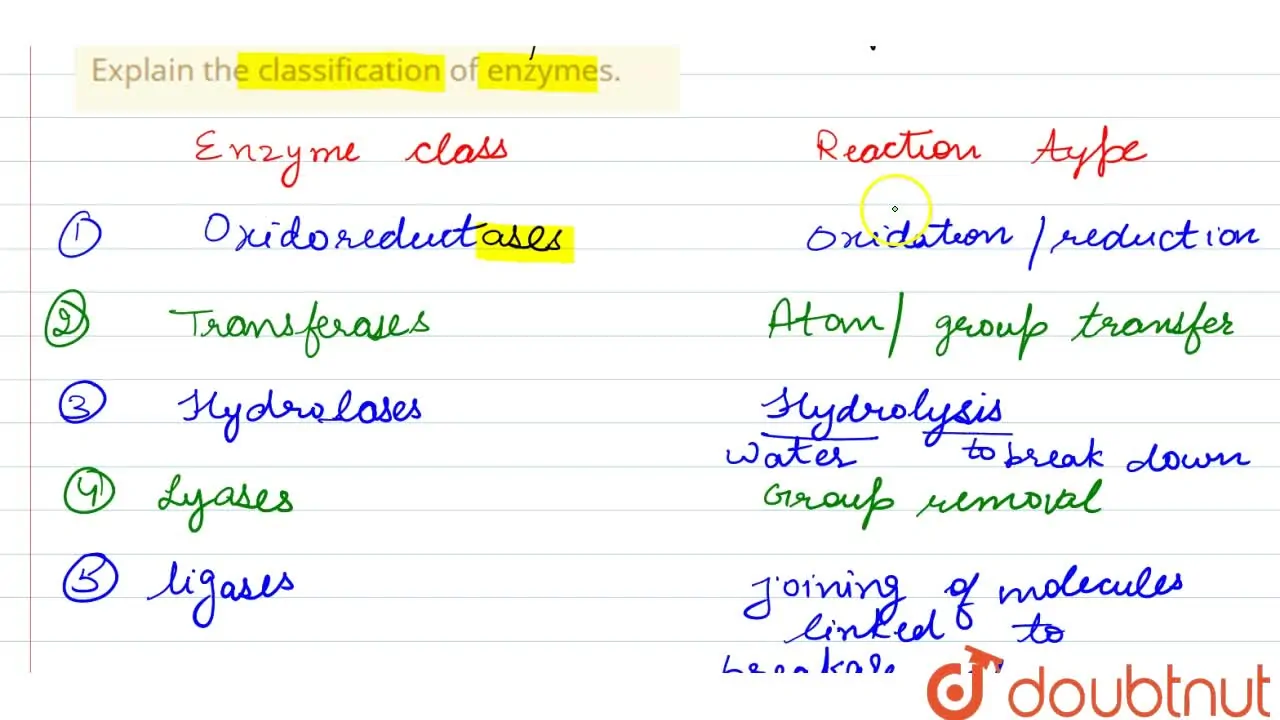 Explain the classification of enzymes.
Enzyme class Reaction type
① Oxidoreductases Oxidation / reduction
② Transferases Atom / group transfer
③ Hydrolases Hydrolysis
water to break down
④ Lyases Group removal
⑤ ligases joining of molecules
linked to
doubtnut